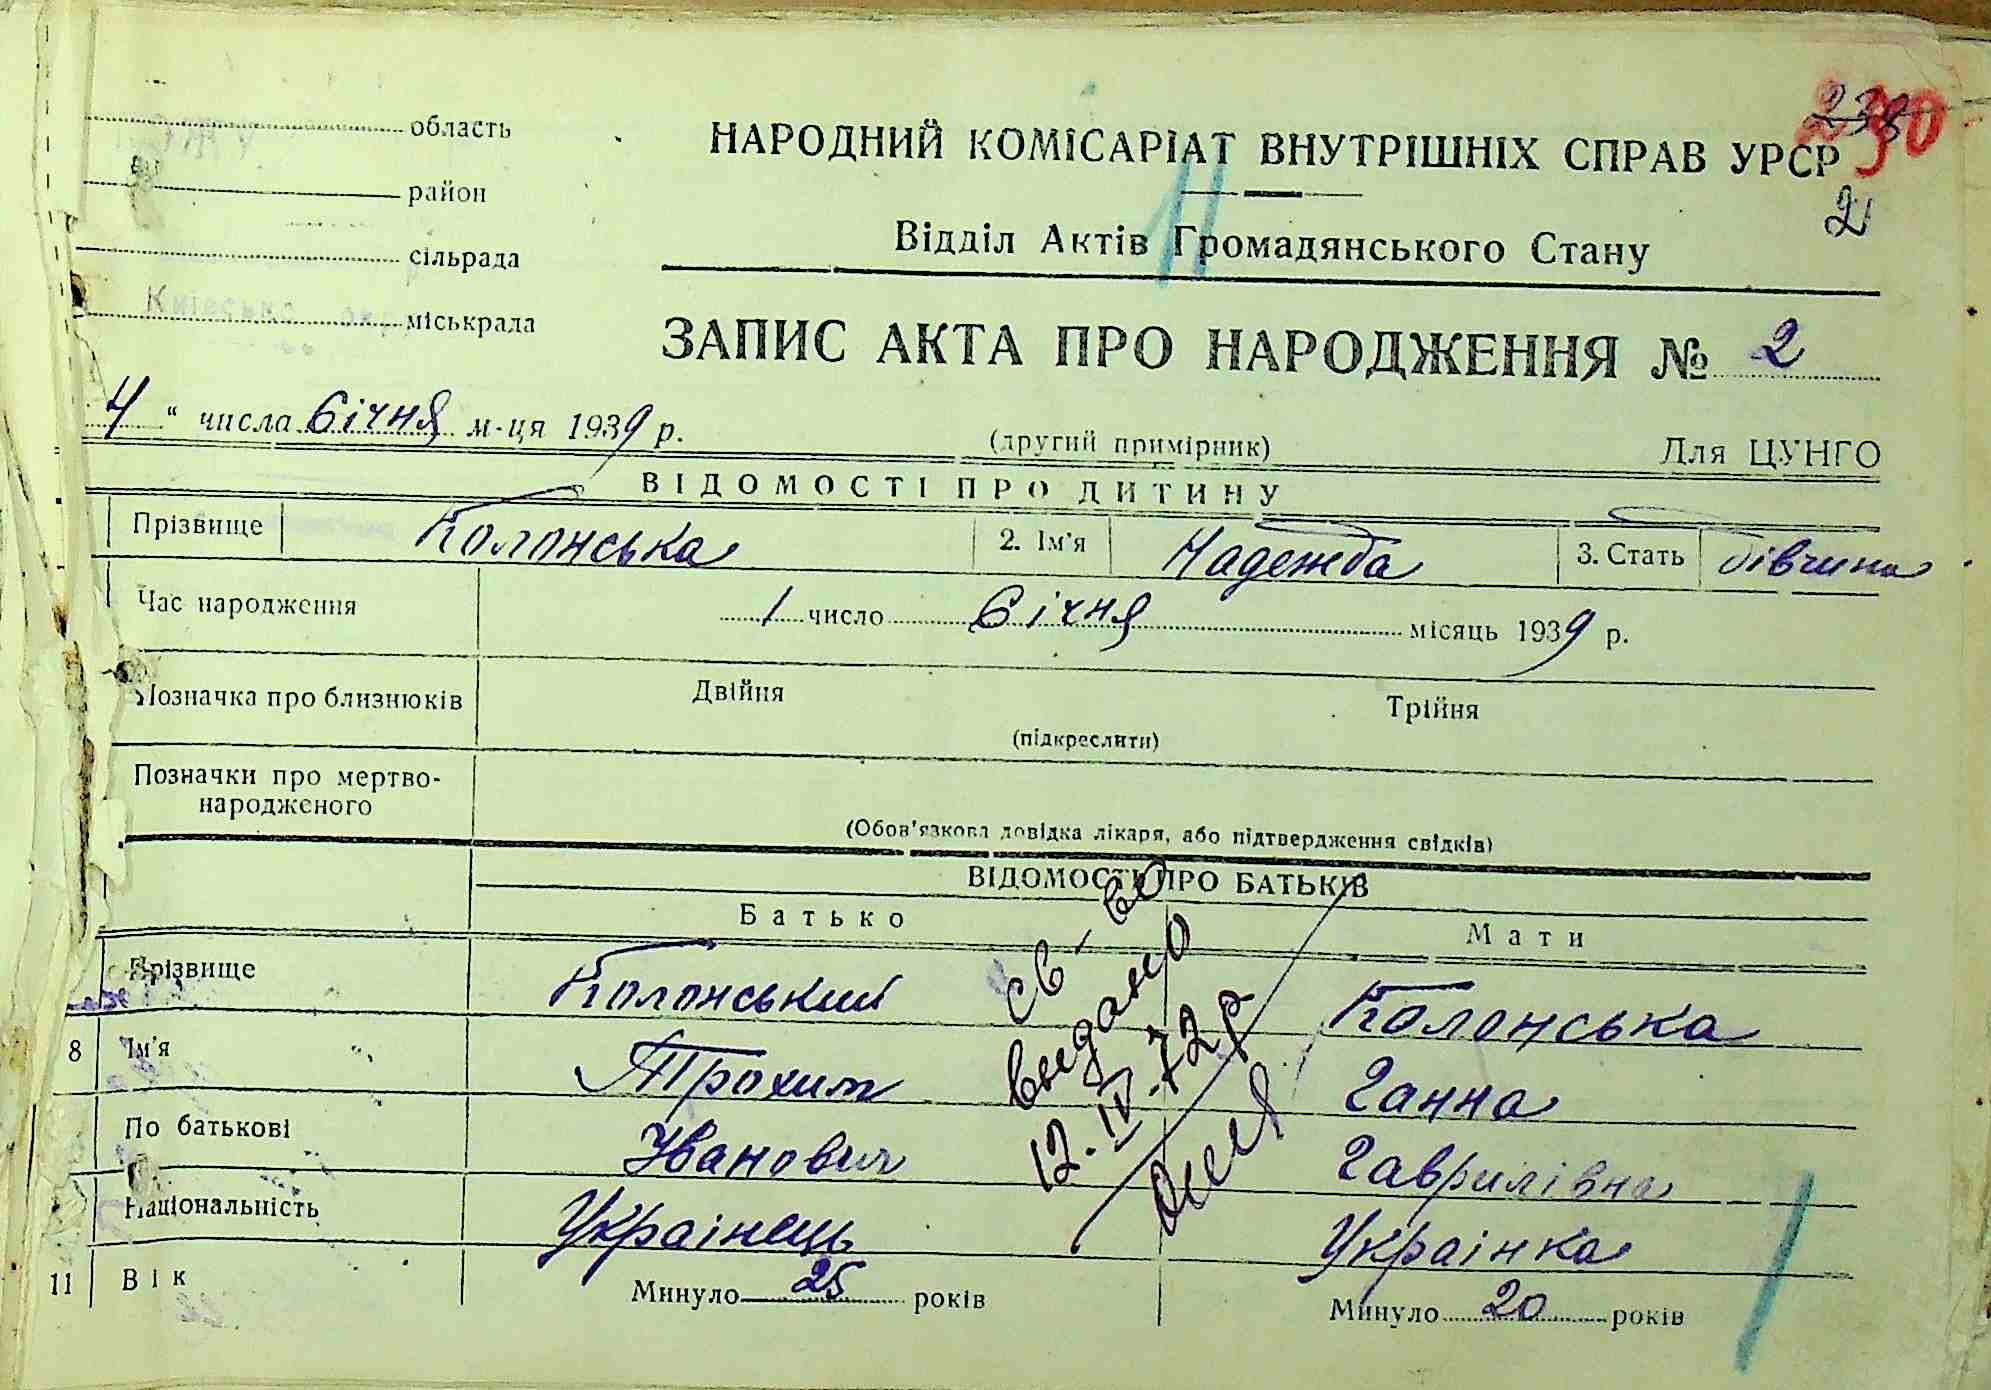 область
НАРОДНИЙ КОМІСАРІАТ ВНУТРІШНІХ СПРАВ УРСР
230
238
2
район
Відділ Актів Громадянського Стану
сільрада
міськрада
ЗАПИС АКТА ПРО НАРОДЖЕННЯ № 2
4 " числа Січня м-ця 1939 р.
(другий примірник)
Для ЦУНГО
ВІДОМОСТІ ПРО ДИТИНУ
Прізвище Полонська 2. Ім'я Надежда 3. Стать дівчина
Час народження 1 число Січня місяць 1939 р.
Позначка про близнюків Двійня Трійня
(підкреслити)
Позначки про мертво-
народженого
(Обов'язкова довідка лікаря, або підтвердження свідків)
ВІДОМОСТІ ПРО БАТЬКІВ
Батько Мати
Прізвище Полонський Полонська
8 Ім'я Трохим Ганна
По батькові Іванович Гаврилівна
Національність Українець Українка
11 Вік Минуло 25 років Минуло 20 років
св-во
выдано
12.IV-72р